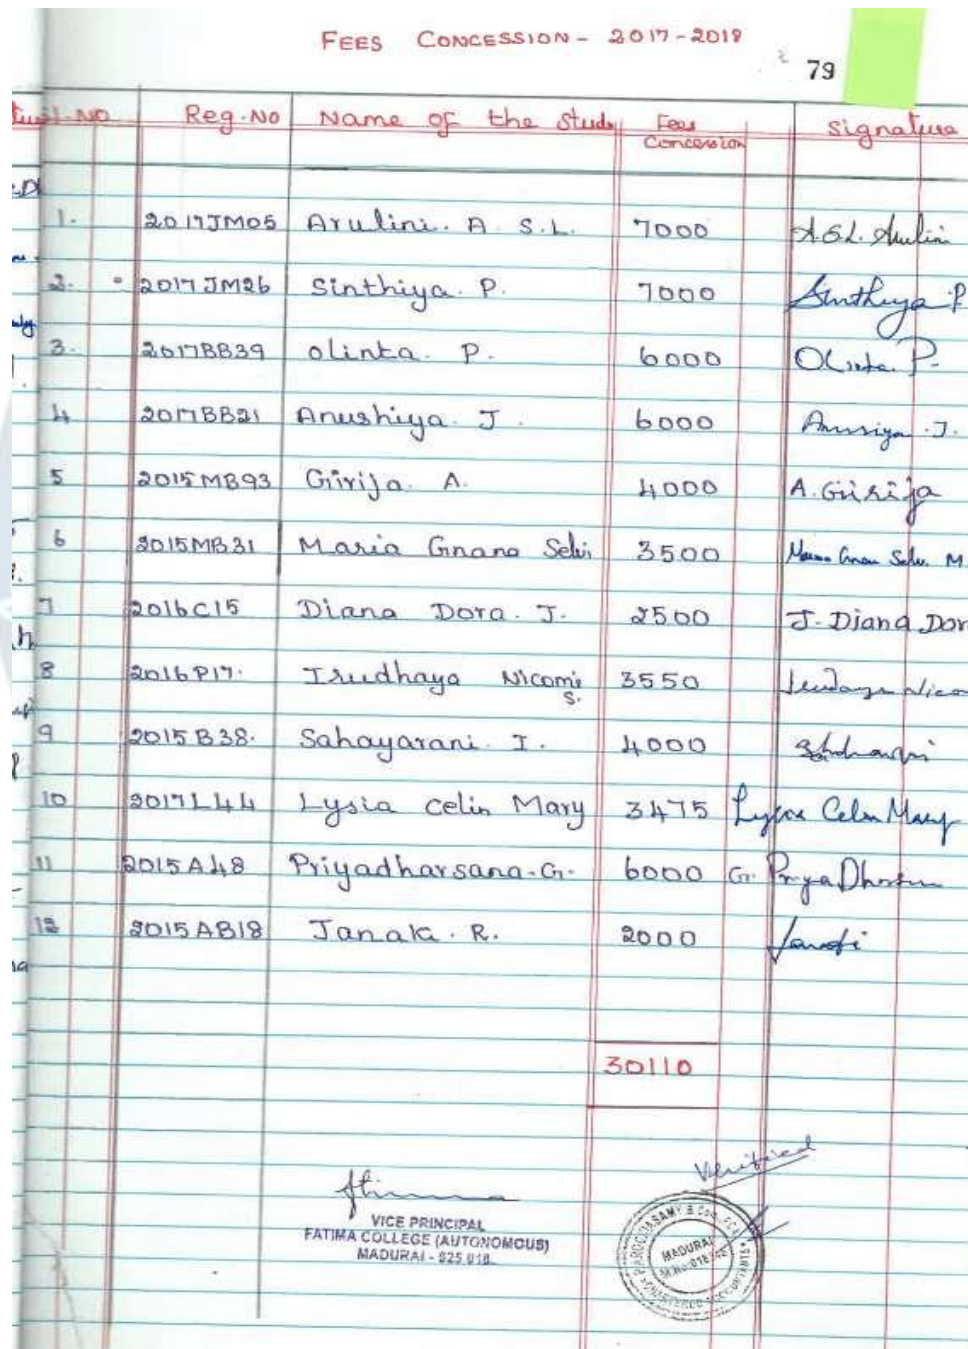 FEES CONCESSION - 2017-2018
79
Reg.No Name of the Stude Fees Concession Signature
1. 2017JM05 Arulini. A. S.L. 7000 A.S.L. Arulini
2. 2017JM26 Sinthiya. P. 7000 Sinthiya P
3. 2017BB39 Olinta. P. 6000 Olinta. P.
4 2017BB21 Anushiya. J. 6000 Anusiya. J.
5 2015MB93 Girija. A. 4000 A. Girija
6 2015MB31 Maria Gnana Selvi 3500 Maria Gnana Selvi. M
7 2016C15 Diana Dora. J. 2500 J. Diana Dor
8 2016P17. Irudhaya Nicomi S. 3550
9 2015B38. Sahayarani. I. 4000
10 2017L44 Lysia Celin Mary 3475 Celin Mary
11 2015A48 Priyadharsana. G. 6000 G.
12 2015AB18 Janaki. R. 2000
30110
Verified
VICE PRINCIPAL
FATIMA COLLEGE (AUTONOMOUS)
MADURAI - 625 018.
MADURAI